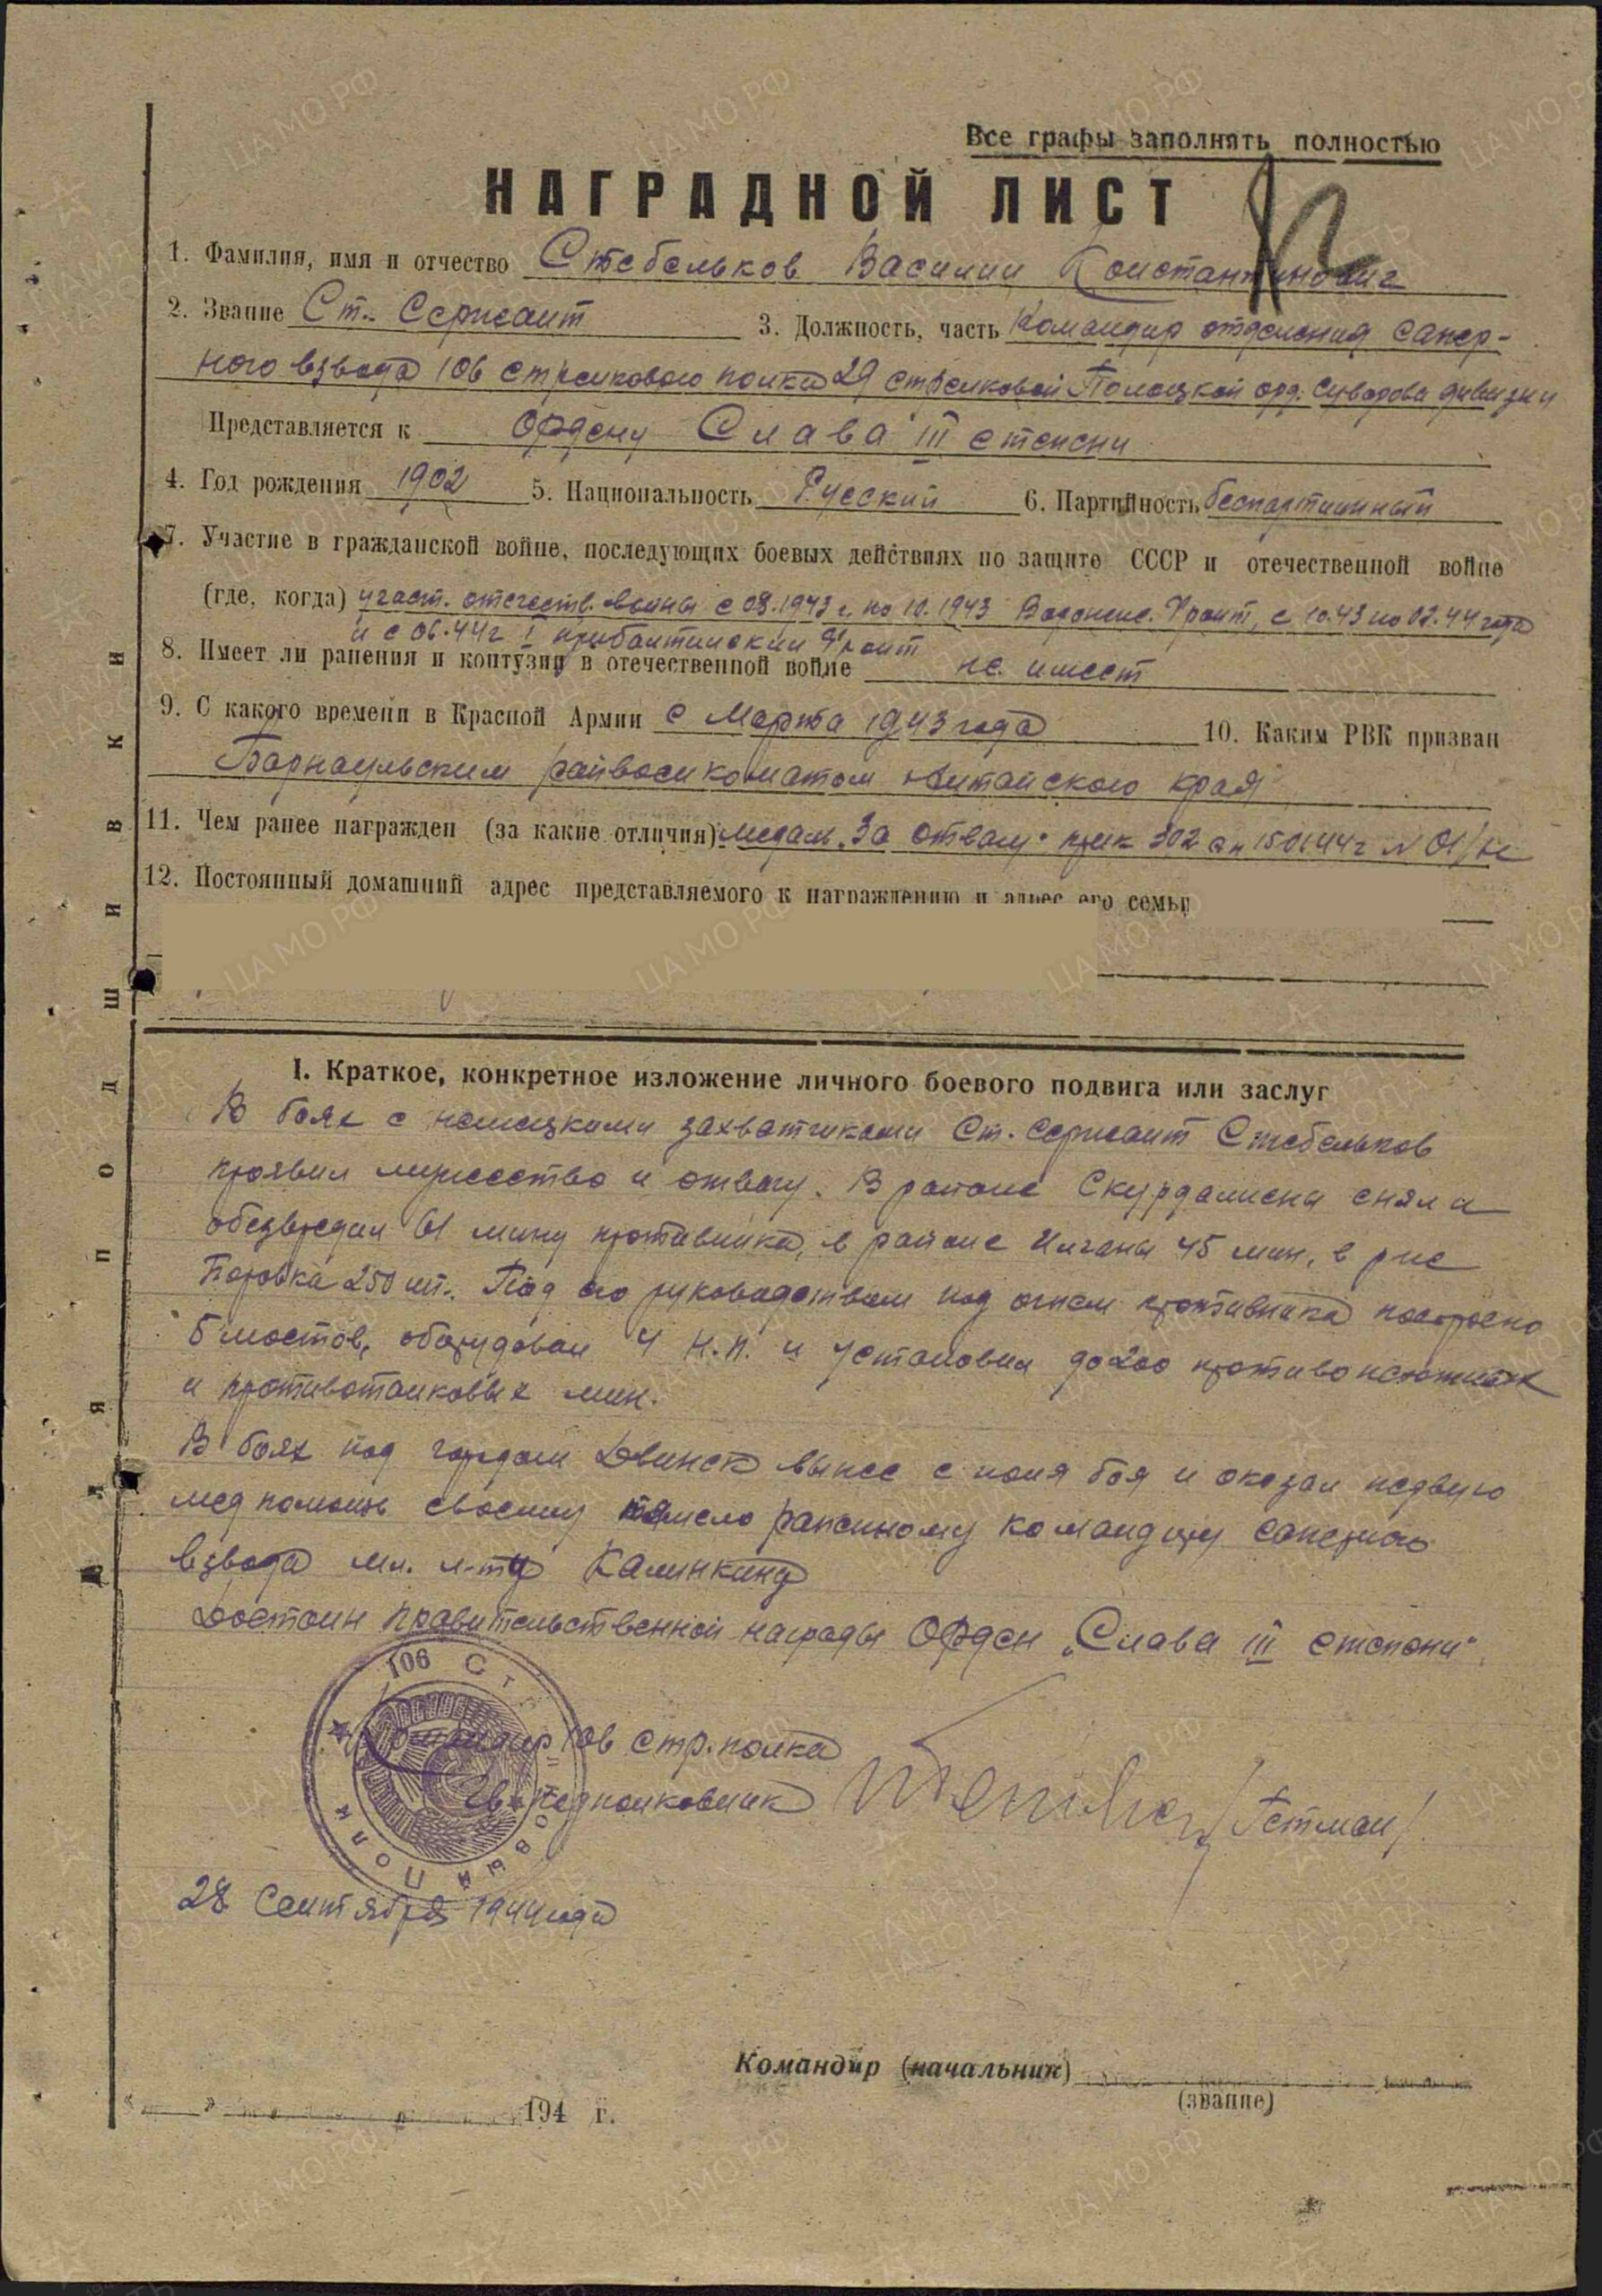 Все графы заполнять полностью
НАГРАДНОЙ ЛИСТ
1. Фамилия, имя и отчество Стебельков Василий Константинович
2. Звание Ст. Сержант 3. Должность, часть Командир отделения сапер-
ного взвода 106 стрелкового полка 29 стрелковой Полоцкой орд. Суворова дивизии
Представляется к Ордену Слава III степени
4. Год рождения 1902 5. Национальность Русский 6. Партийность беспартийный
7. Участие в гражданской войне, последующих боевых действиях по защите СССР и отечественной войне
(где, когда) участ. отечеств. войны с 08.1943 г. по 10.1943 Воронеж. Фронт, с 10.43 по 02.44 года
и с 06.44г I прибалтийский Фронт
8. Имеет ли ранения и контузии в отечественной войне не имеет
9. С какого времени в Красной Армии с Марта 1943 года 10. Каким РВК призван
Барнаульским райвоенкоматом Алтайского края
11. Чем ранее награжден (за какие отличия) медаль „За отвагу" 302 15.01.44г N 01/н
12. Постоянный домашний адрес представляемого к награждению и адрес его семьи
I. Краткое, конкретное изложение личного боевого подвига или заслуг
В боях с немецкими захватчиками Ст. сержант Стебельков
проявил мужество и отвагу. В районе снял и
обезвредил 61 мину противника, в районе 45 мин, в р-не
Боровка 250 шт. Под его руководством под огнем противника построено
5 мостов, оборудовал 4 Н.П. и установил до 200 противопехотных
и противотанковых мин.
В боях под городом Двинск вынес с поля боя и оказал первую
медпомощь своему тяжело раненному командиру саперного
взвода мл. л-ту Калинкину
Достоин правительственной награды Орден „Слава III степени"
Командир 106 стр. полка
гв. подполковник /Гетман/
106 Стрелковый Полк
28 Сентября 1944 года
Командир (начальник)
(звание)
« » 194 г.
Для подшивки
ЦА МО РФ
ПАМЯТЬ НАРОДА